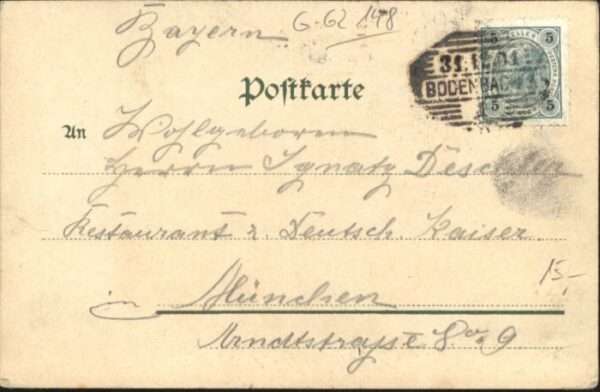 Bayern.
G-62 148
5 HELLER 5
31.12.01
BODENBACH
5 5
Postkarte
An Wohlgeboren
Herrn Ignatz
Restaurant z. Deutsch. Kaiser.
15,-
in München
Arndtstraße 9